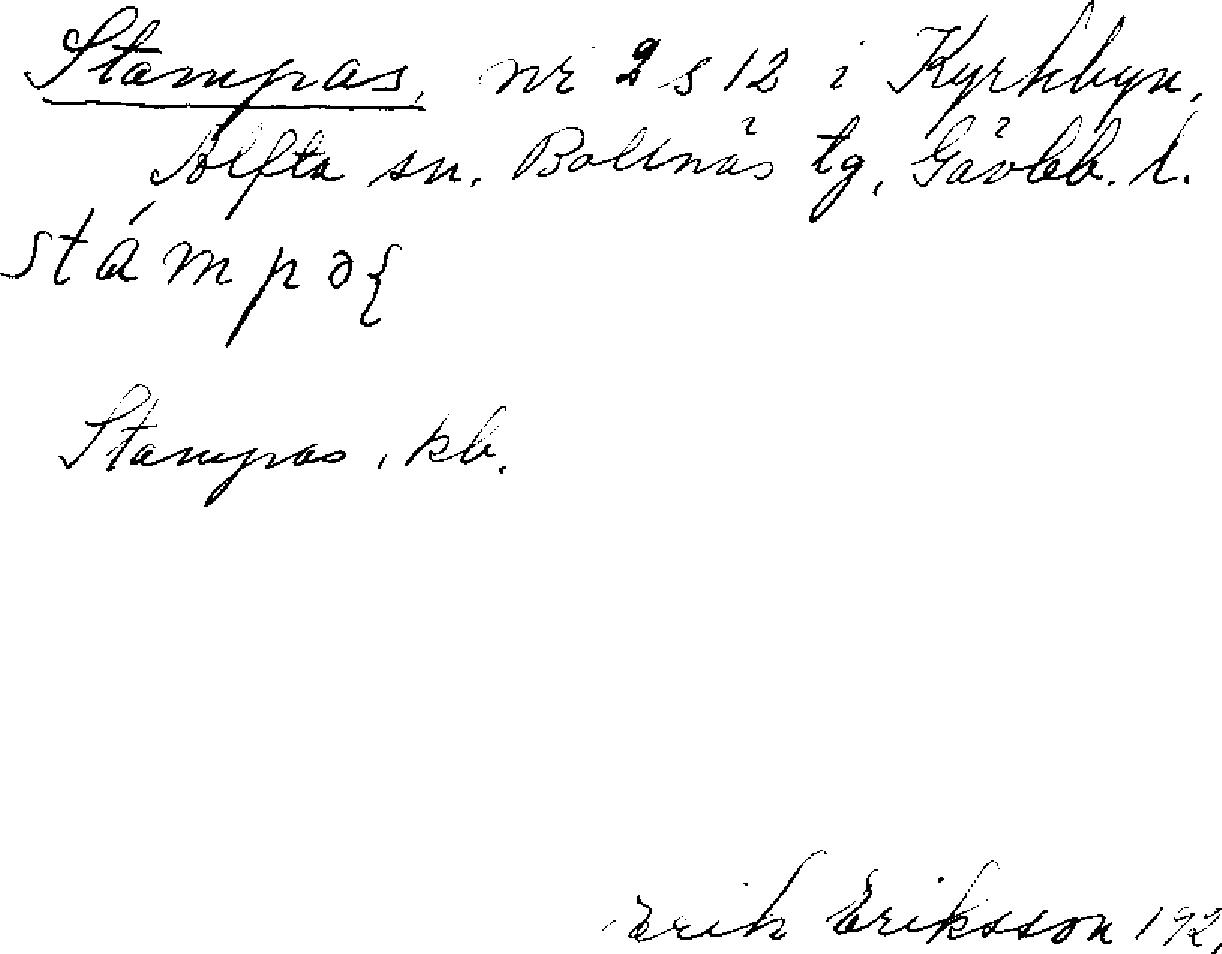 Stampas, nr 2 s 12 i Kyrkbyn,
Alfta sn. Bollnäs tg, Gävleb. l.
stámpəʃ
Stampas, kb.
Erik Eriksson 192